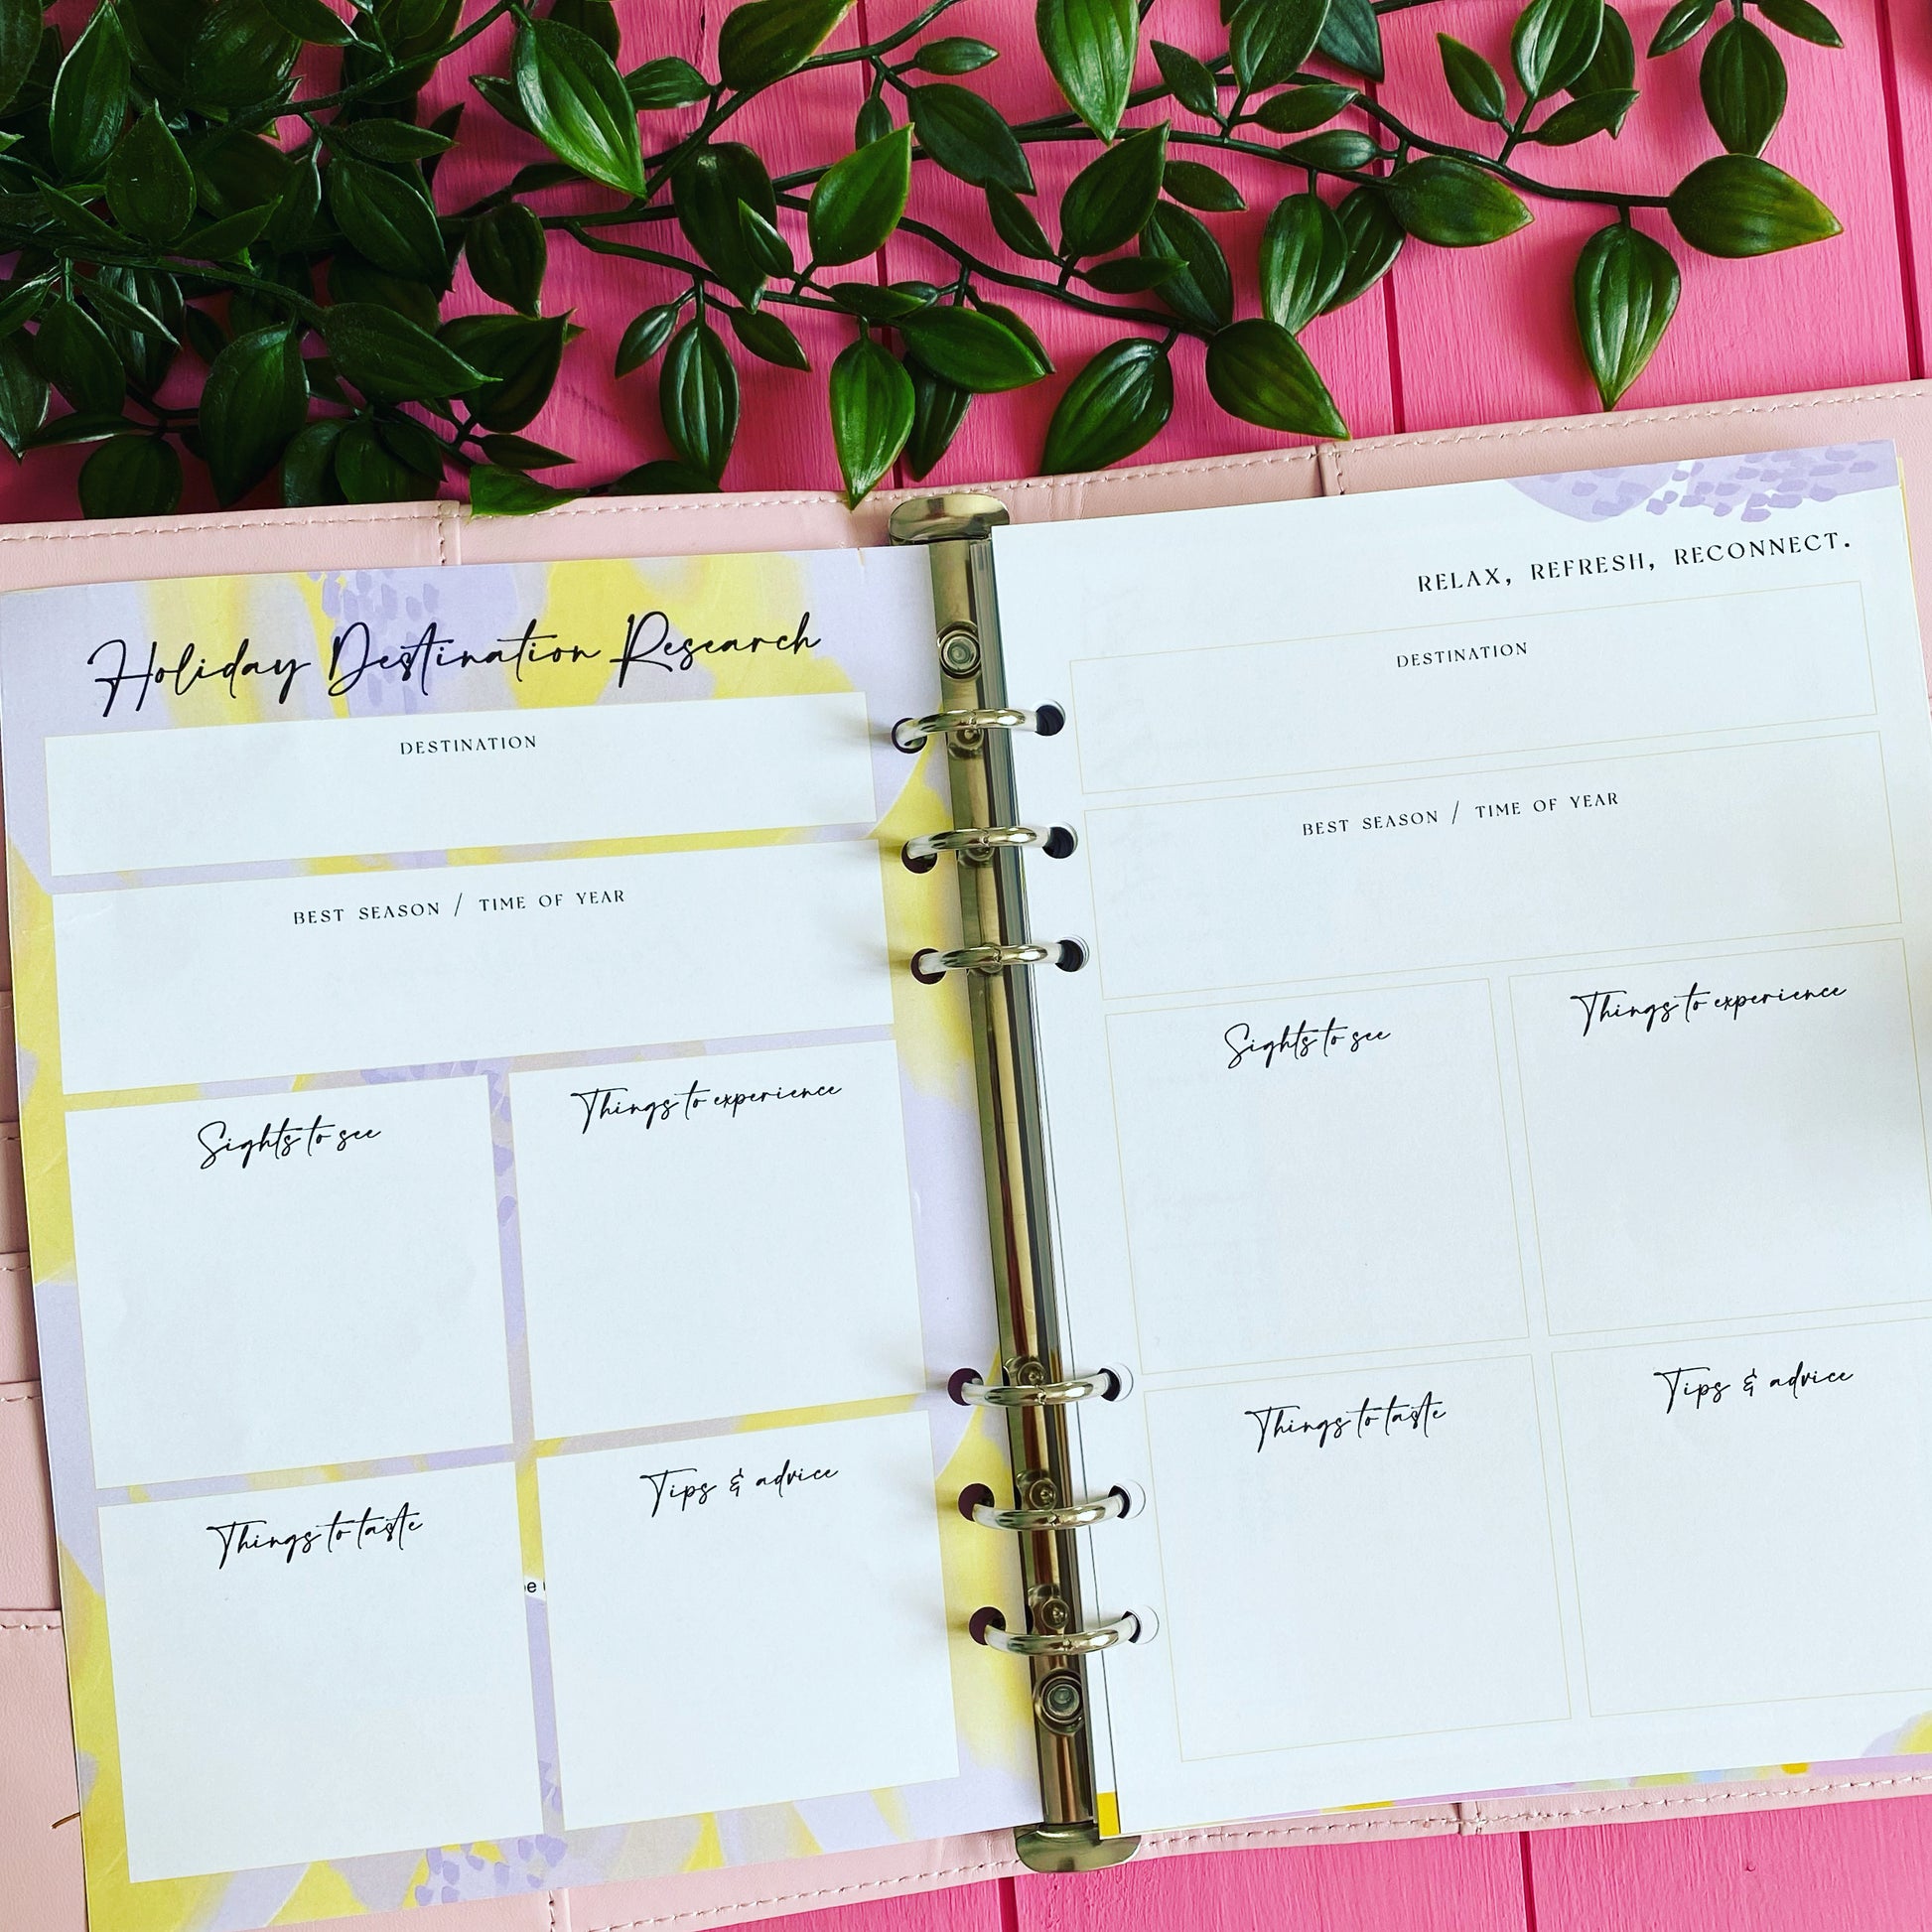 Holiday Destination Research
DESTINATION
BEST SEASON / TIME OF YEAR
Sights to see
Things to experience
Things to taste
Tips & advice
RELAX, REFRESH, RECONNECT.
DESTINATION
BEST SEASON / TIME OF YEAR
Sights to see
Things to experience
Things to taste
Tips & advice